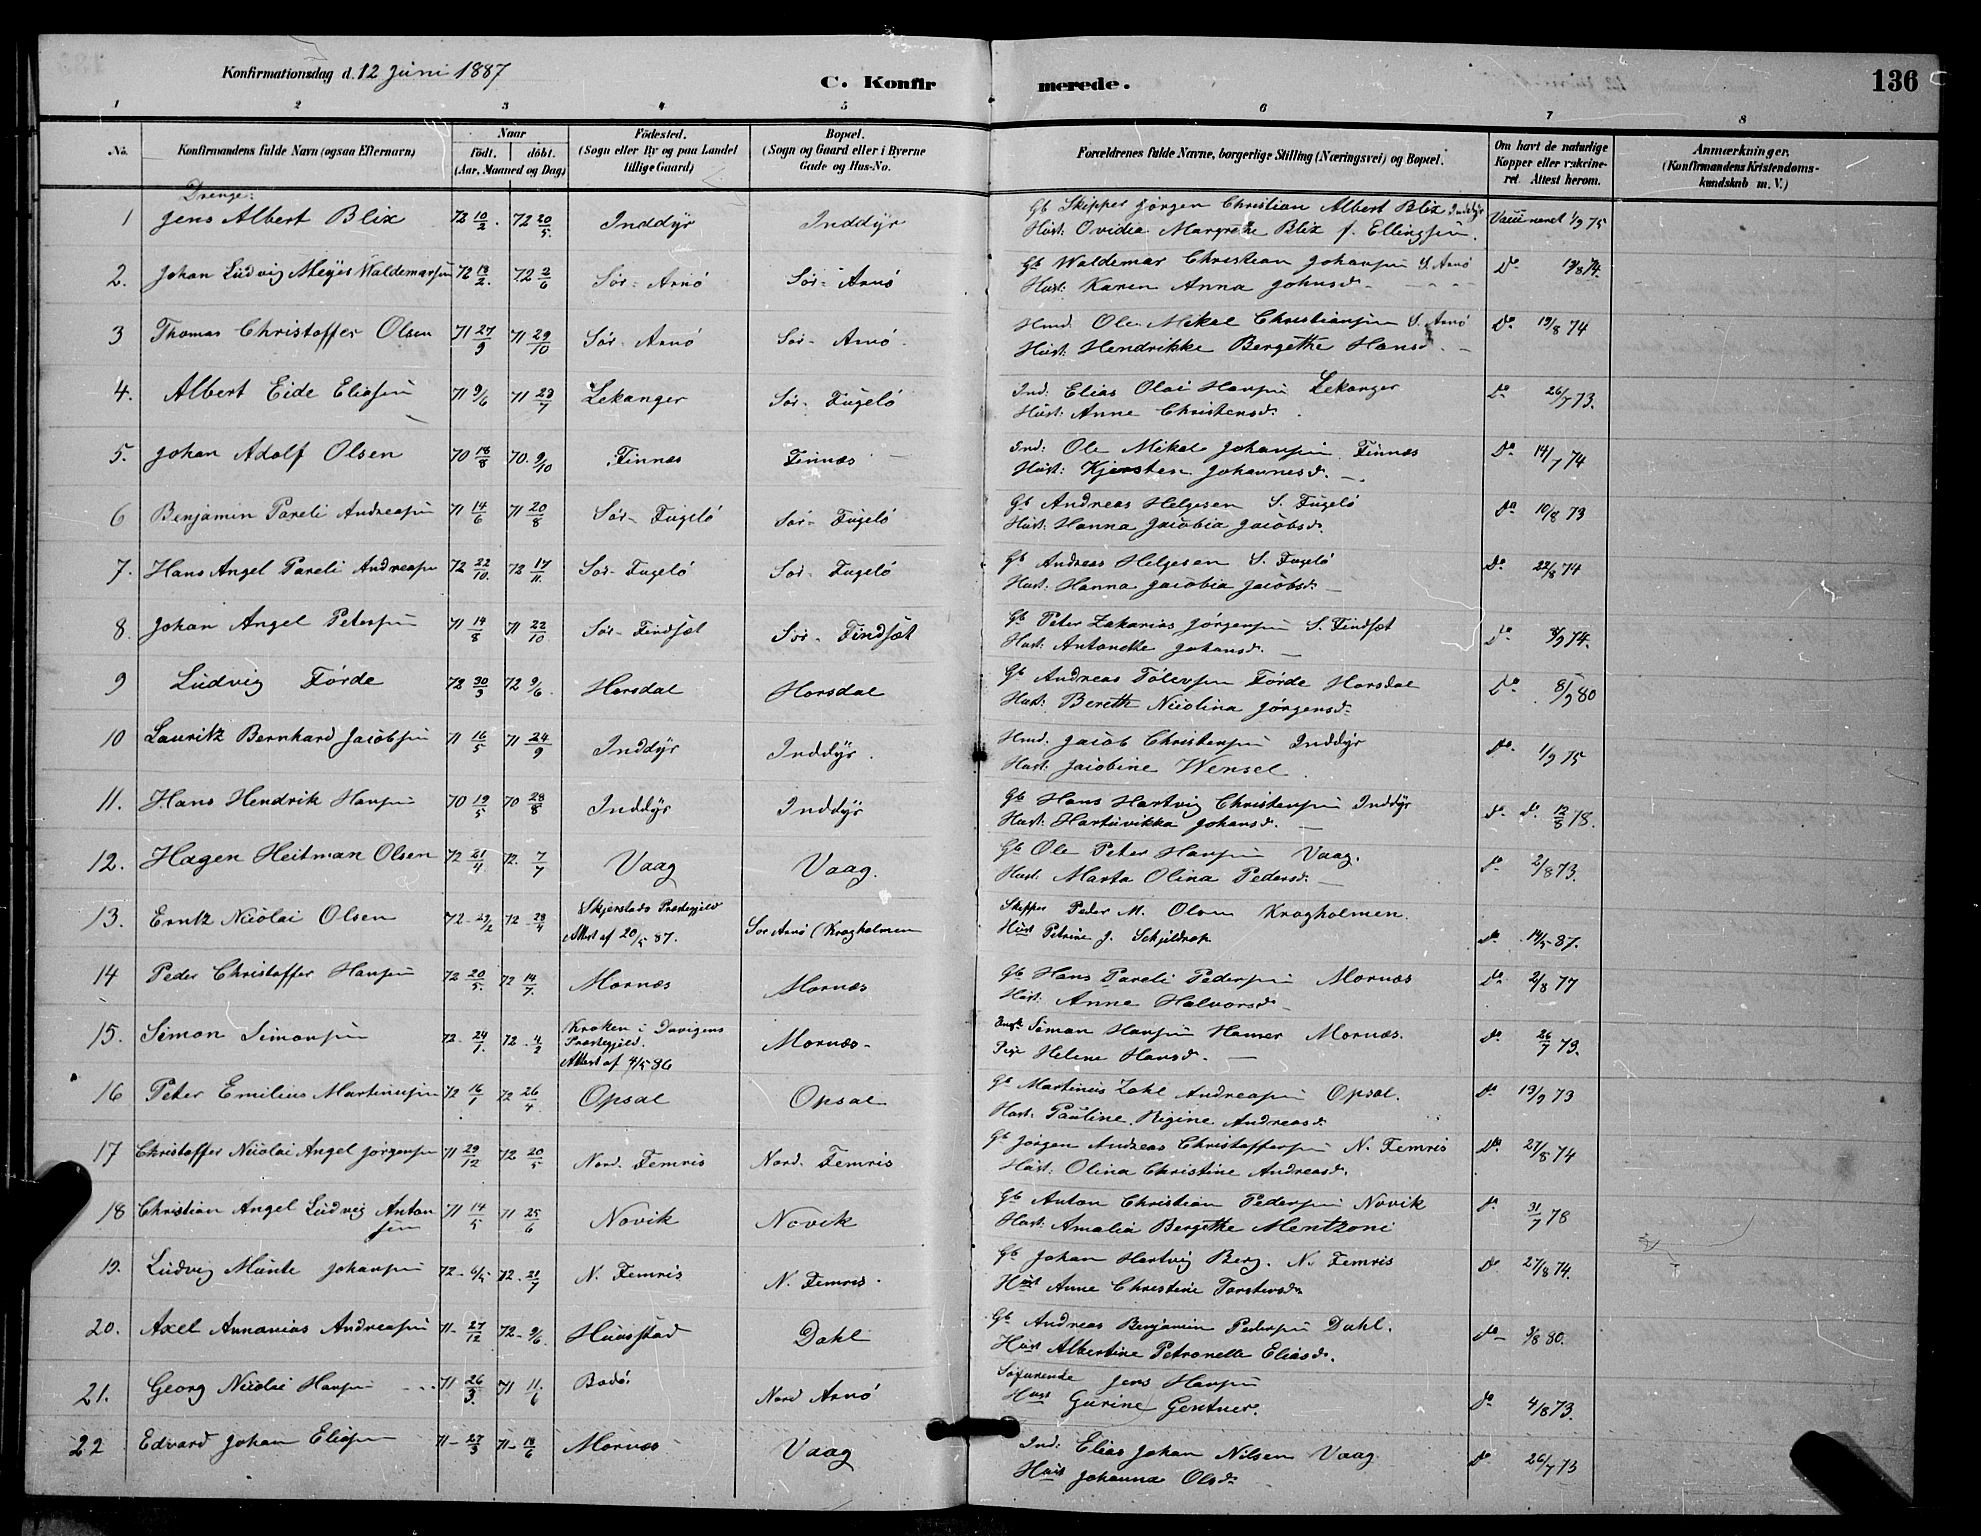 Konfirmationsdag d. 12 Juni 1887
C. Konfirmerede.
136
1 2 3 4 5 6 7 8
No. Konfirmandens fulde Navn (ogsaa Efternavn) Naar født. døbt. (Aar, Maaned og Dag) Fødested. (Sogn eller By og paa Landet tillige Gaard) Bopæl. (Sogn og Gaard eller i Byerne Gade og Hus-No. Forældrenes fulde Navne, borgerlige Stilling (Næringsvei) og Bopæl. Om havt de naturlige Kopper eller vakcineret. Attest herom. Anmærkninger. (Konfirmandens Kristendomskundskab m. V.)
Drenge:
1 Jens Albert Blix 72 10/2 72 20/5 Inddyr Inddyr Gb Skipper Jørgen Christian Albert Blix Inddyr Vaccineret 1/9 75
Hust: Ovidia Margrethe Blix f. Ellingsen
2. Johan Ludvig Meyer Waldemarsen 72 18/2 72 2/6 Sør-Arnø Sør-Arnø Gb Waldemar Christian Johansen S. Arnø Do 19/8 74
Hust: Karen Anna Johnsd.
3 Thomas Christoffer Olsen 71 27/9 71 29/10 Sør-Arnø Sør-Arnø Hmd. Ole Mikal Christiansen S. Arnø Do 19/8 74
Hust: Hendrikke Bergethe Hansd.
4. Albert Eide Eliasen 71 9/6 71 23/7 Lekanger Sør-Fugelø Ind: Elias Olai Hansen Lekanger Do 26/7 73.
Hust: Anne Christensd.
5. Johan Adolf Olsen 70 18/8 70. 9/10 Finnæs Finnæs Ind: Ole Mikal Johansen Finnæs Do 14/7 74
Hust: Kjersten Johannesd.
6 Benjamin Pareli Andreasen 71 14/6 71 20/8 Sør-Fugelø Sør-Fugelø Gb Andreas Helgesen S. Fugelø Do 10/8 73
Hust: Hanna Jacobia Jacobsd.
7. Hans Angel Pareli Andreasen 72 22/10. 72 17/11. Sør-Fugelø Sør-Fugelø Gb Andreas Helgesen S. Fugelø Do 22/8 74
Hust: Hanna Jacobia Jacobsd.
8. Johan Angel Petersen 71 14/8 71 22/10 Sør-Findset Sør-Findset Gb Peter Zakarias Jørgensen S. Findset Do 3/9 74.
Hust: Antonette Johansd.
9 Ludvig Førde 72 30/3 72 9/6. Horsdal Horsdal Gb Andreas Tølevsen Førde Horsdal Do 8/9 80
Hust: Berith Nicolina Jørgensd.
10 Lauritz Bernhard Jacobsen 71 16/5 71 24/9 Inddyr Inddyr. Hmd. Jacob Christensen Inddyr do. 1/9 75
Hust: Jacobine Wensel.
11. Hans Hendrik Hansen 70 19/5 70 28/8 Inddyr Inddyr Gb Hans Hartvig Christensen Inddyr do. do. 12/8 78.
Hust: Hartuvikka Johansd.
12. Hagen Heitman Olsen 72 21/4 72. 7/7 Vaag Vaag. Gb Ole Peter Hansen Vaag. do 2/8 73.
Hust: Marta Olina Pedersd.
13. Erntz Nicolai Olsen 72 - 29/2 72 - 28/4 Skjerstads Præstegjeld Attest af 20/5 87. Sør Arnø (Kragholmen Skipper Peder M. Olsen Kragholmen.
Hust Petrine J. Schjeldrop do 14/5 87.
14 Peder Christoffer Hansen 72 20/5. 72 14/7. Mornæs Mornæs Gb Hans Pareli Pedersen Mornæs Do 2/8 77
Hust: Anne Halvorsd
15. Simon Simonsen 72 - 24/1. 72 - 4/2 Kroken i Præstegjeld. Attest af 4/5 86 Mornæs - Simon Hansen Hamer Mornæs. Do 26/7 73.
Pige Helene Hansd.
16 Peter Emilius Martinusen 72 16/1 72 26/4. Opsal Opsal Gb Martinus Zahl Andreasen Opsal. Do 19/9 73
Hust: Pauline Regine Andreasd.
17 Christoffer Nicolai Angel Jørgensen 71 29/12 72 20/5 Nord. Femris Nord. Femris Gb Jørgen Andreas Christoffersen N. Femris Do. 27/8 74
Hust: Olina Christine Andreasd.
18 Christian Angel Ludvig Antonsen 71 14/5 71 25/6 Novik Novik Gb Anton Christian Pedersen Novik do. 31/7 78
Hust: Amalia Bergethe Mentzoni
19. Ludvig Munte Johansen 72 - 6/5 72 - 21/7 N. Femris N. Femris Gb Johan Hartvig Berg. N. Femris Do 27/8 74.
Hust Anne Christine Torstensd.
20. Axel Annanias Andreasen 71 - 27/12 72 - 9/6. Haasstad Dahl Gb Andreas Benjamin Pedersen Dahl. do 3/8 80.
Hust Albertine Petronelle Eliasd.
21. Georg Nicolai Hansen 71 26/3. 71 11/6 Bodø. Nord Arnø Søfarende Jens Hansen
Hust Gurine Gentner. do 4/8 73.
22 Edvard Johan Eliasen 71 - 27/3 71 - 18/6 Mornæs Vaag Ind: Elias Johan Nilsen Vaag Do 26/7 73
Hust Johanna Olsd.